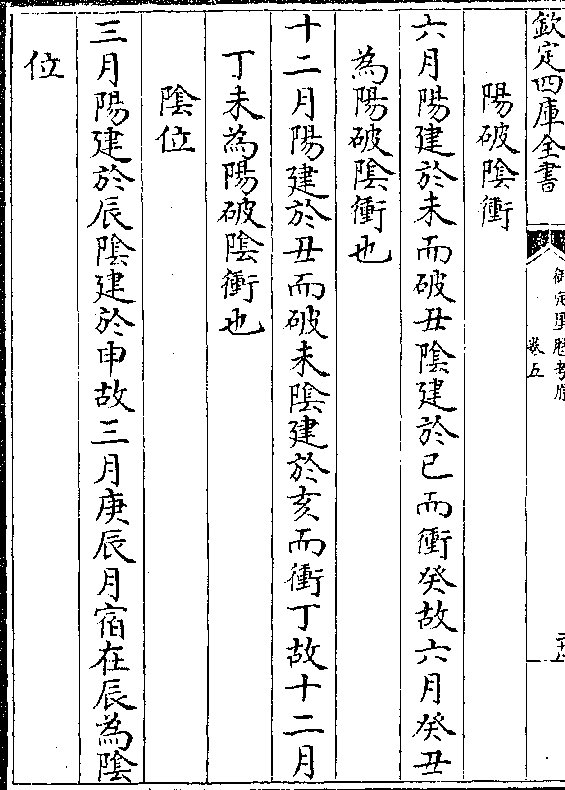 欽定四庫全書
卷五
陽破陰衝
六月陽建於未而破丑陰建於巳而衝癸故六月癸丑
為陽破陰衝也
十二月陽建於丑而破未陰建於亥而衝丁故十二月
丁未為陽破陰衝也
陰位
三月陽建於辰陰建於申故三月庚辰月宿在辰為陰
位